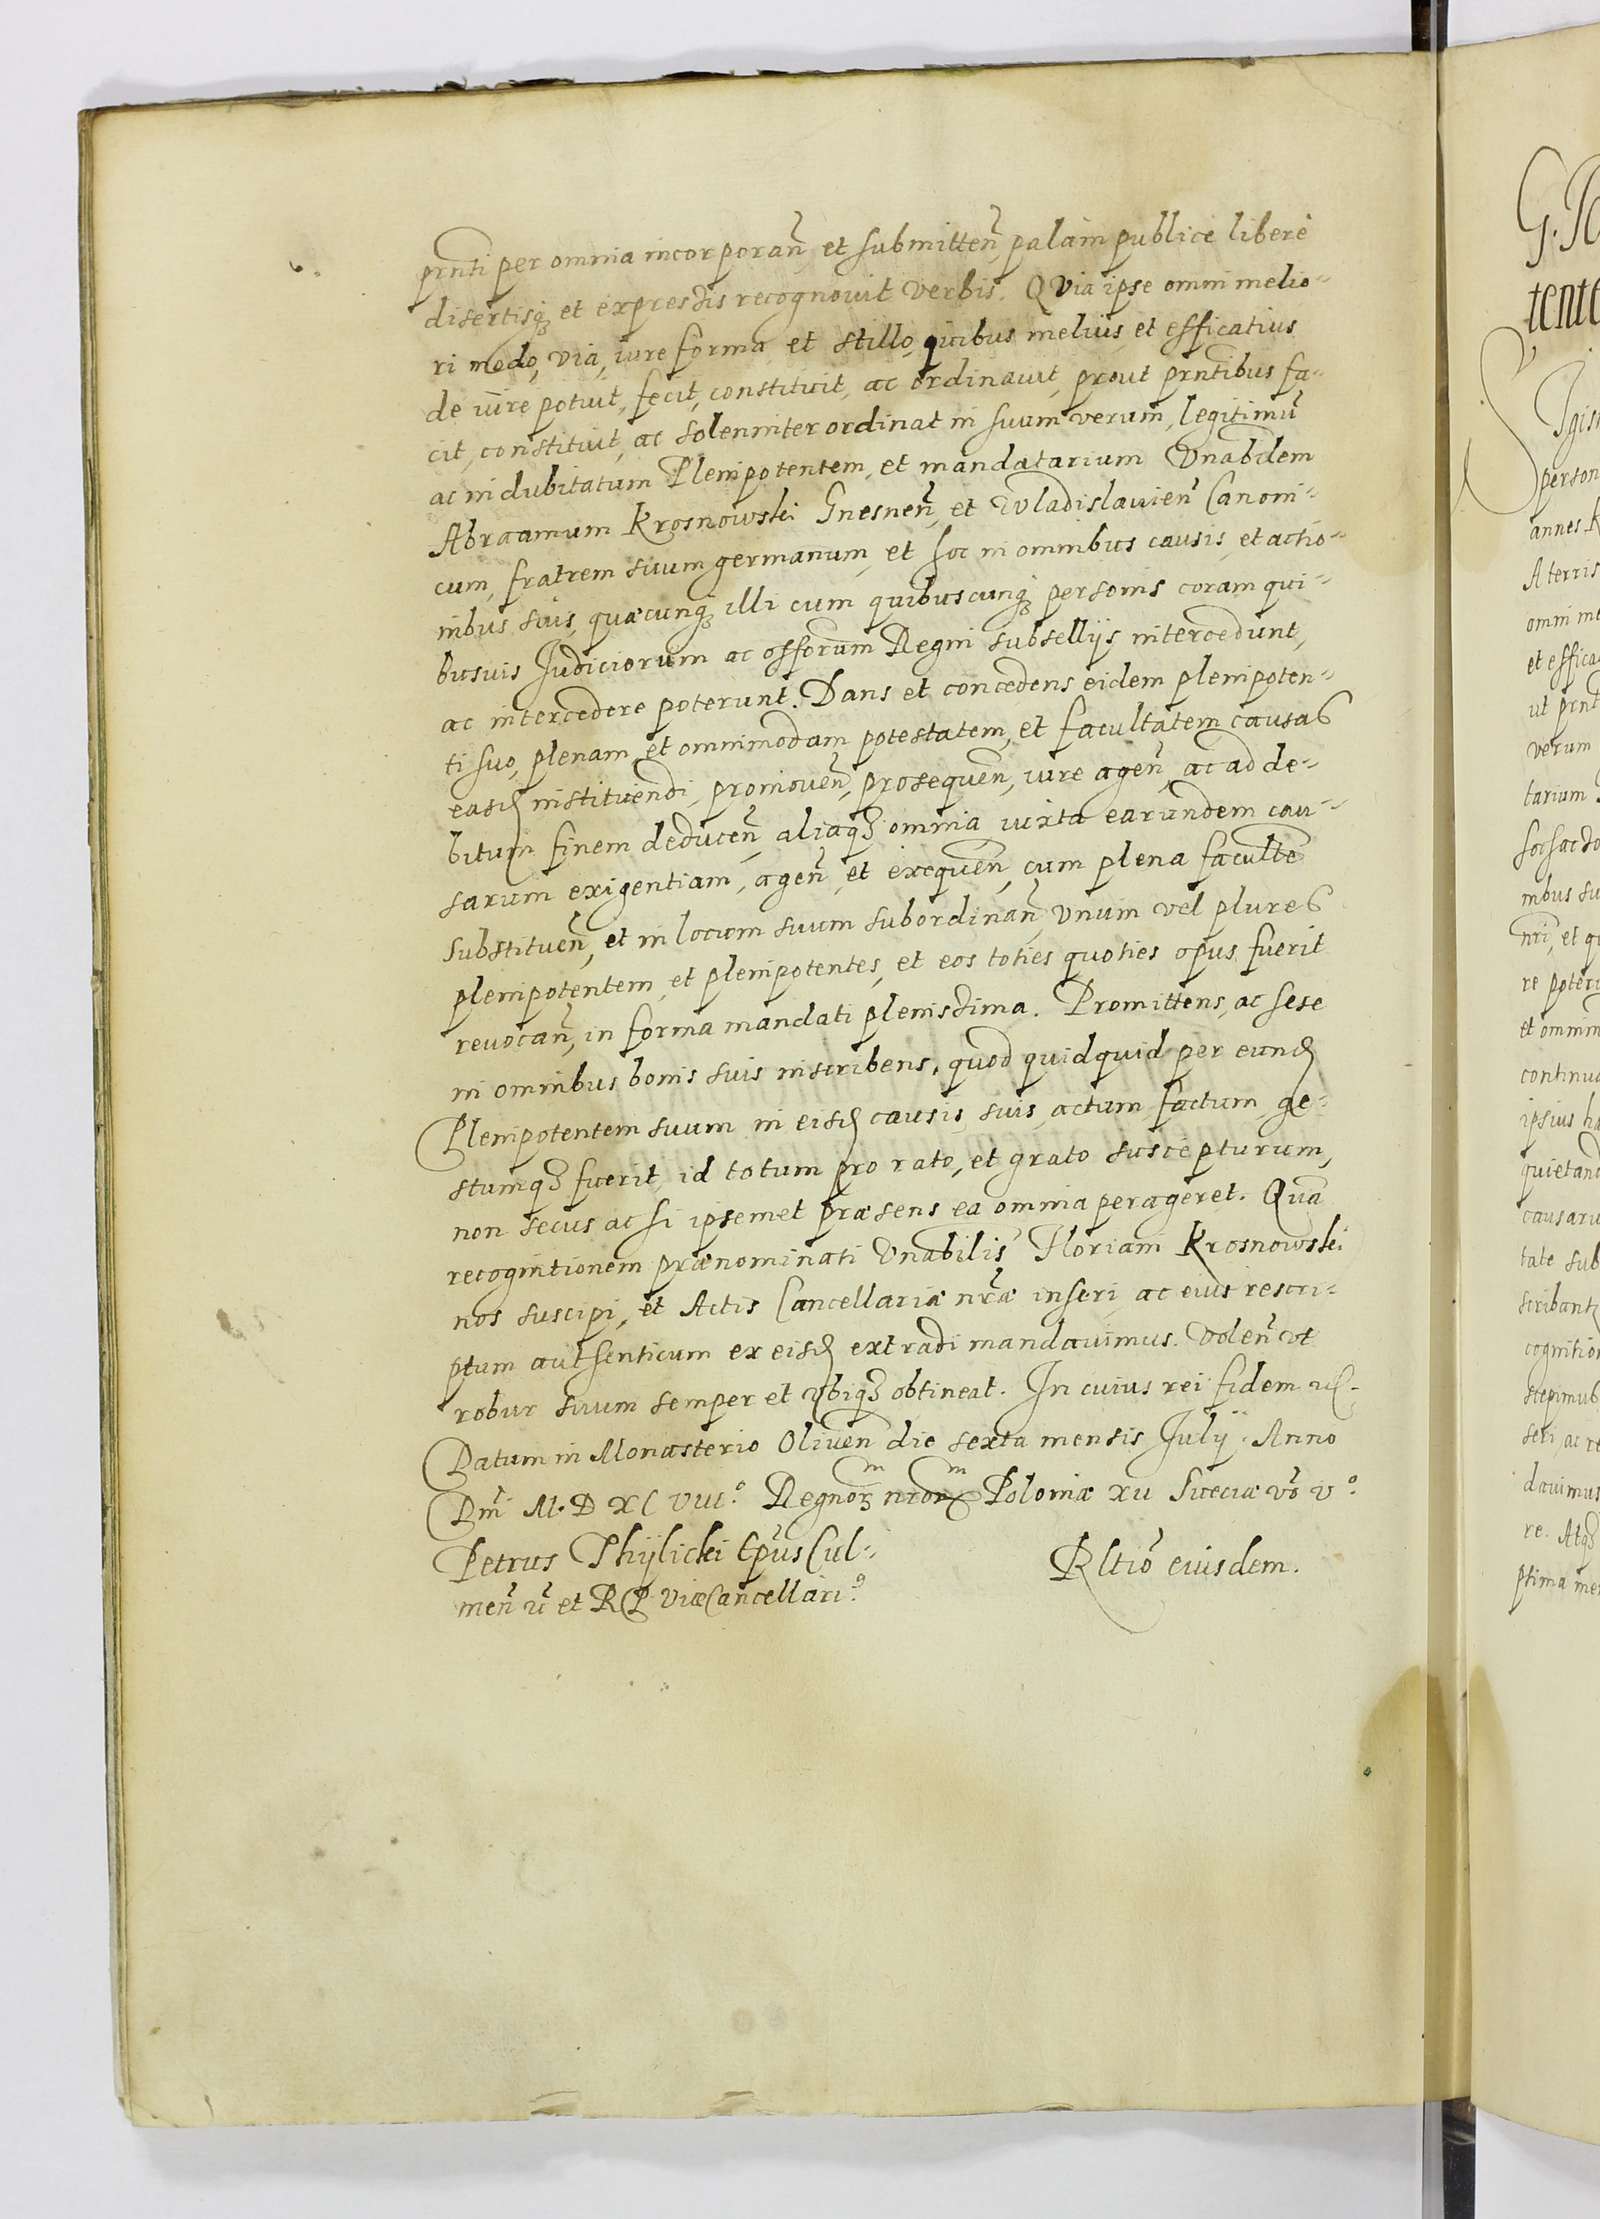 prnti per omnia incorporan̄, et submitten̄, palàm publicè liberè
disertisq; et expressis recognovit verbis. QVia ipse omni melio-
ri modo, via, iure forma, et stillo, quibus meliùs, et efficatius
de iùre potuit, fecit, constituit, ac ordinauit, prout prntibus fa-
cit, constituit, ac solenniter ordinat in suum verum, legitimū
ac indubitatum Plenipotentem, et mandatarium Vnabilem
Abraamum Krosnowski Gnesnen̄, et Wladislauien̄ Canoni-
cum, fratrem suum germanum, et hoc in omnibus causis, et actio-
nibus suis, quæcunq; illi cum quibuscunq; personis coram qui-
busuis Judiciorum ac offorum Regni subsellijs intercedunt,
ac intercedere poterunt. Dans et concedens eidem plenipoten-
ti suo, plenam, et omnimodam potestatem, et facultatem, causas
easd instituendi, promouen̄, prosequen̄, iure agen̄, ac ad de-
bitum finem deducen̄, aliaq; omnia iuxta earundem cau-
sarum exigentiam, agen̄, et exequen̄, cum plena facultē
substituen̄, et in locum suum subordinan̄, vnum vel plures
plenipotentem, et plenipotentes, et eos toties quoties opus fuerit
reuocan̄, in forma mandati plenissima. Promittens, ac sese
in omnibus bonis suis inscribens, quod quidquid per eund
Plenipotentem suum in eisd causis suis, actum, factum ge-
stumq; fuerit, id totum pro rato, et grato suscepturum,
non secus ac si ipsemet præsens ea omnia perageret. Quā
recognitionem prænominati Vnabilis Floriani Krosnowski
nos suscipi, et Actis Cancellariæ nræ inseri, ac eius rescri-
ptum authenticum ex eisd extradi mandauimus. Volen̄ vt
robur suum semper et vbiq; obtineat. In cuius rei fidem &c.
Datum in Monasterio Oliuen̄ die sexta mensis Julij. Anno
Dni M.D XC VIII.º Regnor; nror; Poloniæ XII Sueciæ vō V.º
Petrus Thÿlicki Epūs Cul-
men̄ &c et RP ViceCancellari9
Rltiō eiusdem.
G.
tente
person
annes K
A terris
omni me
et effica
ut prnt
verum
tarium
nibus su
nri, et qu
re poter
et omnim
continua
ipsius ha
quietand
causaru
tate sub
scribant
cognition
scepimus
seri, ac re
dauimus
re. Atq;
ptima men